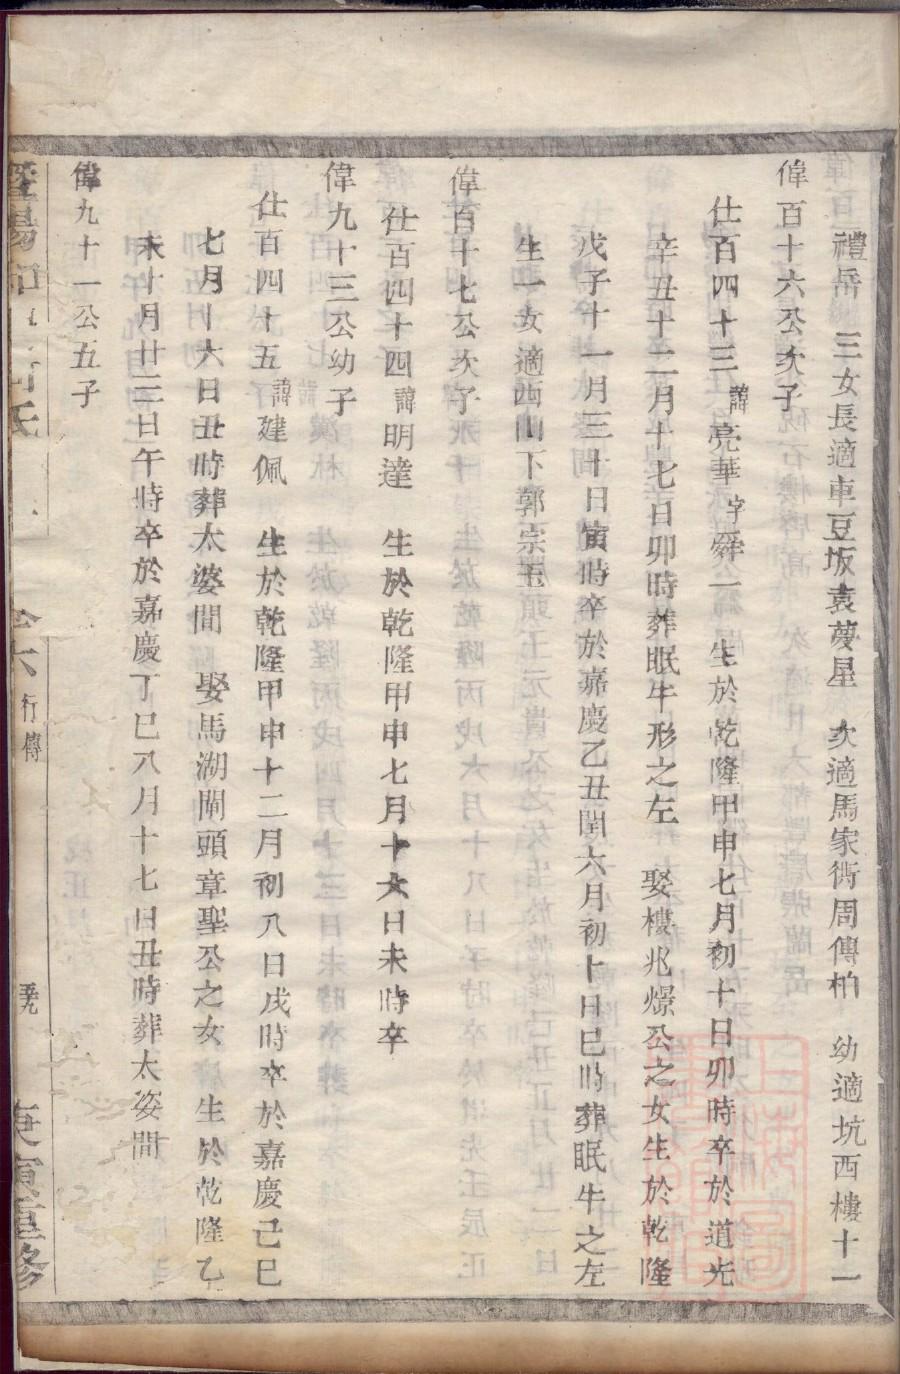 禮岳 三女長適車豆坂袁夢星 次適馬家衖周傳柏 幼適坑西樓十一
偉百十六公次子
仕百四十三諱亮華字舜一 生於乾隆甲申七月初十日卯時卒於道光
辛丑十二月十七日卯時葬眠牛形之左 娶樓兆燝公之女生於乾隆
戊子十一月三十日寅時卒於嘉慶乙丑閏六月初十日巳時葬眠牛之左
生一女適西山下郭宗玉
偉百十七公次子
仕百四十四諱明達 生於乾隆甲申七月十六日未時卒
偉九十三公幼子
仕百四十五諱建佩 生於乾隆甲申十二月初八日戌時卒於嘉慶己巳
七月十六日丑時葬太婆間 娶馬湖閘頭章聖公之女 生於乾隆乙
未十月廿三日午時卒於嘉慶丁巳八月十七日丑時葬太婆間
偉九十一公五子
暨陽 氏
卷六 行傳
庚寅重修